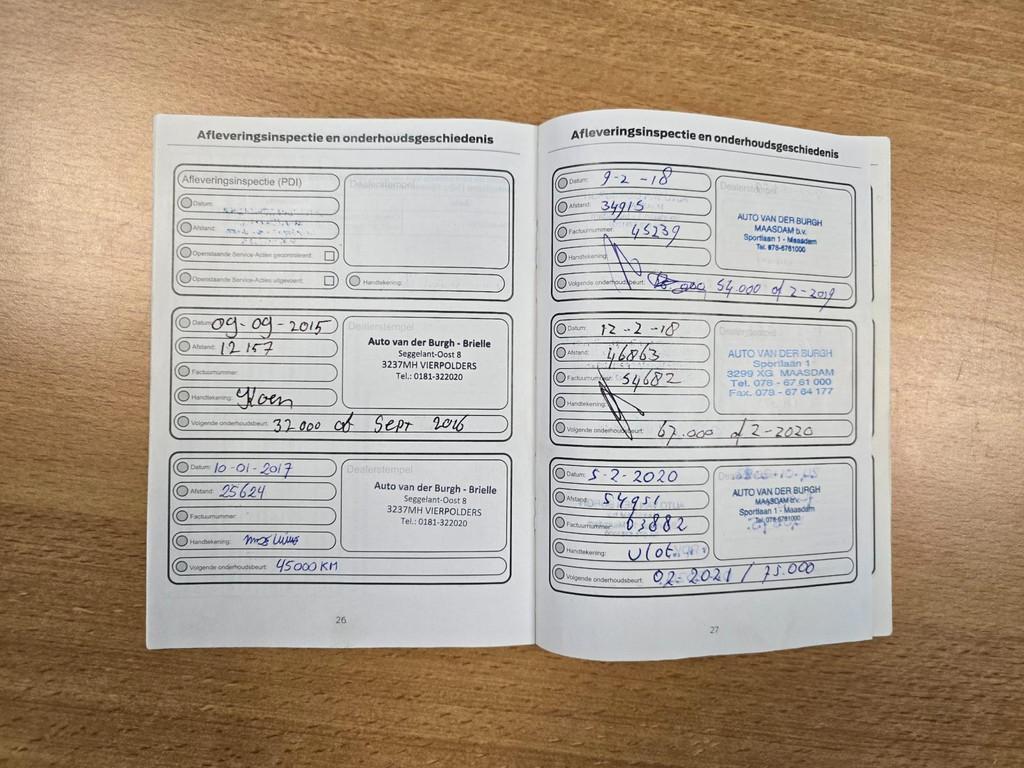 Afleveringsinspectie en onderhoudsgeschiedenis
Afleveringsinspectie (PDI)
Dealerstempel
Datum:
Afstand:
Openstaande Service-Acties gecontroleerd:
Openstaande Service-Acties uitgevoerd:
Handtekening:
Datum: 09-09-2015
Dealerstempel
Afstand: 12157
Auto van der Burgh - Brielle
Seggelant-Oost 8
3237MH VIERPOLDERS
Tel.: 0181-322020
Factuurnummer:
Handtekening: Koen
Volgende onderhoudsbeurt: 32000 of Sept 2016
Datum: 10-01-2017
Dealerstempel
Afstand: 25624
Auto van der Burgh - Brielle
Seggelant-Oost 8
3237MH VIERPOLDERS
Tel.: 0181-322020
Factuurnummer:
Handtekening:
Volgende onderhoudsbeurt: 45000 KM
26
Afleveringsinspectie en onderhoudsgeschiedenis
Datum: 9-2-18
Dealerstempel
Afstand: 34915
AUTO VAN DER BURGH
MAASDAM b.v.
Sportlaan 1 - Maasdam
Tel. 078-6761000
Factuurnummer: 45239
Handtekening:
Volgende onderhoudsbeurt: 54.000 of 2-2019
Datum: 12-2-18
Dealerstempel
Afstand: 46863
AUTO VAN DER BURGH
Sportlaan 1
3299 XG MAASDAM
Tel. 078 - 67 61 000
Fax. 078 - 67 64 177
Factuurnummer: 54682
Handtekening:
Volgende onderhoudsbeurt: 67.000 of 2-2020
Datum: 5-2-2020
Afstand: 54951
AUTO VAN DER BURGH
MAASDAM b.v.
Sportlaan 1 - Maasdam
Tel. 078-6761000
Factuurnummer: 63882
Handtekening: Vlot
Volgende onderhoudsbeurt: 02-2021 / 75.000
27